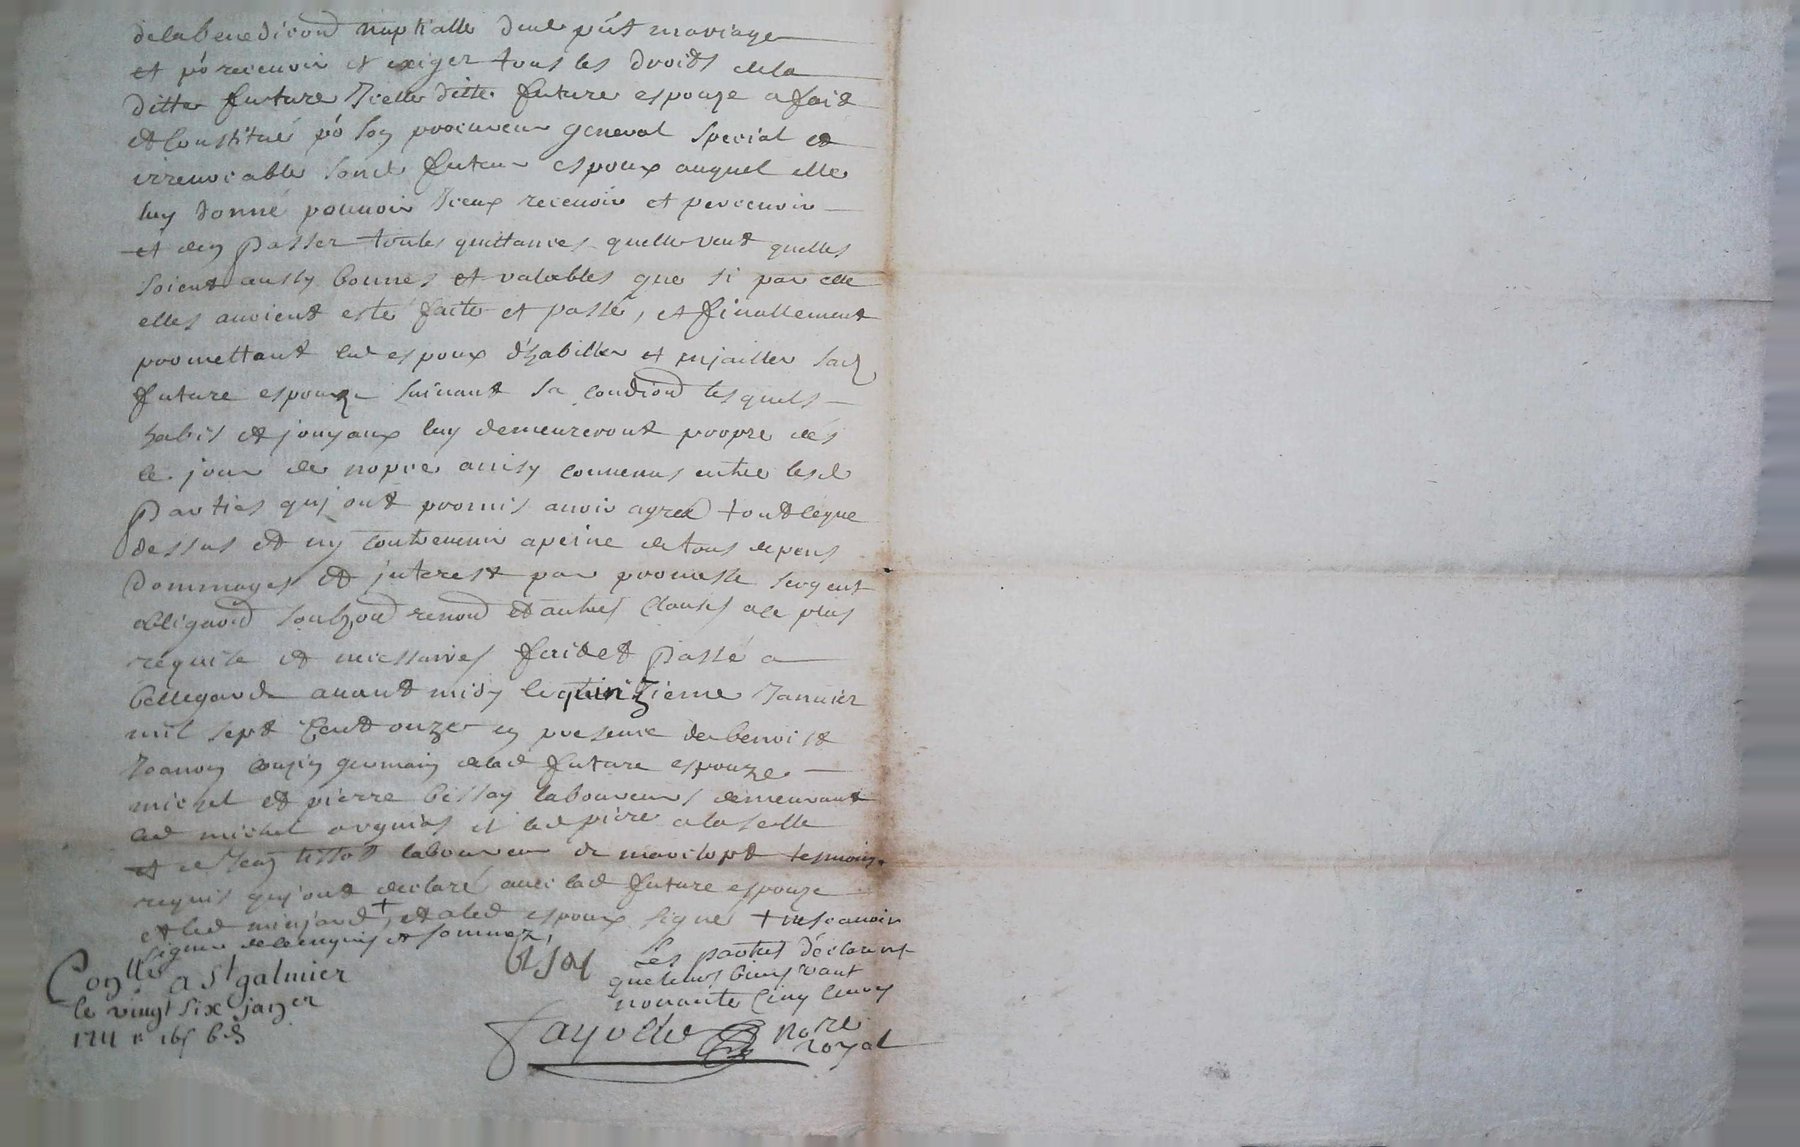 de la benedićond nuptialle dud pnt mariage
et pō recevoir et exiger tous les droicts de la
ditte future Icelle ditte future espouze a faict
et Constitué pō son procureur general special et
irrevocable sond futeur espoux auquel elle
luy donne pouvoir Iceux recevoir et percevoir
et den passer toutes quittances quelle veut quelles
soient aussy bonnes et valables que si par elle
elles avoient esté faite et passé, et finallement
promettant led espoux d'habiller et enjailler sad
future espouze suivant sa condiond lesquels
habis et jouyaux luy demeureront propre dés
le jour de nopce ainsy convenus entre lesd
parties quj ont promis avoir agreé tout ceque
dessus et ny contrevenir a peine de tous depens
dommages et jnterest par promesse serment
obligaond renond et autres Clauses a ce plus
requise et necessaires faict et passé a
bellegarde avant midy le quinzieme Janvier
mil sept Cent onze en presence de benoist
cousin germain de lad future espouze
michel et pierre bissay laboureurs demeurant
led michel et led piere a la selle
et de Jean tissot laboureur de tesmoins
requis quj ont declaré avec lad future espouze
et led + , et aled espoux signé + ne scavoir
signer de ce enquis et sommez,
bisay
les parties déclarent
que leurs biens vant
nonante Cinq livres
Conllé a St galmier
le vingt six janer
1711 R
notre
royal